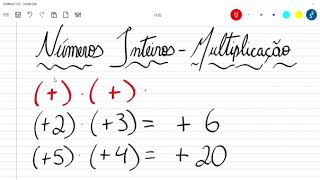 Números Inteiros - Multiplicação
(+) · (+) ·
(+2) · (+3) = + 6
(+5) · (+4) = + 20